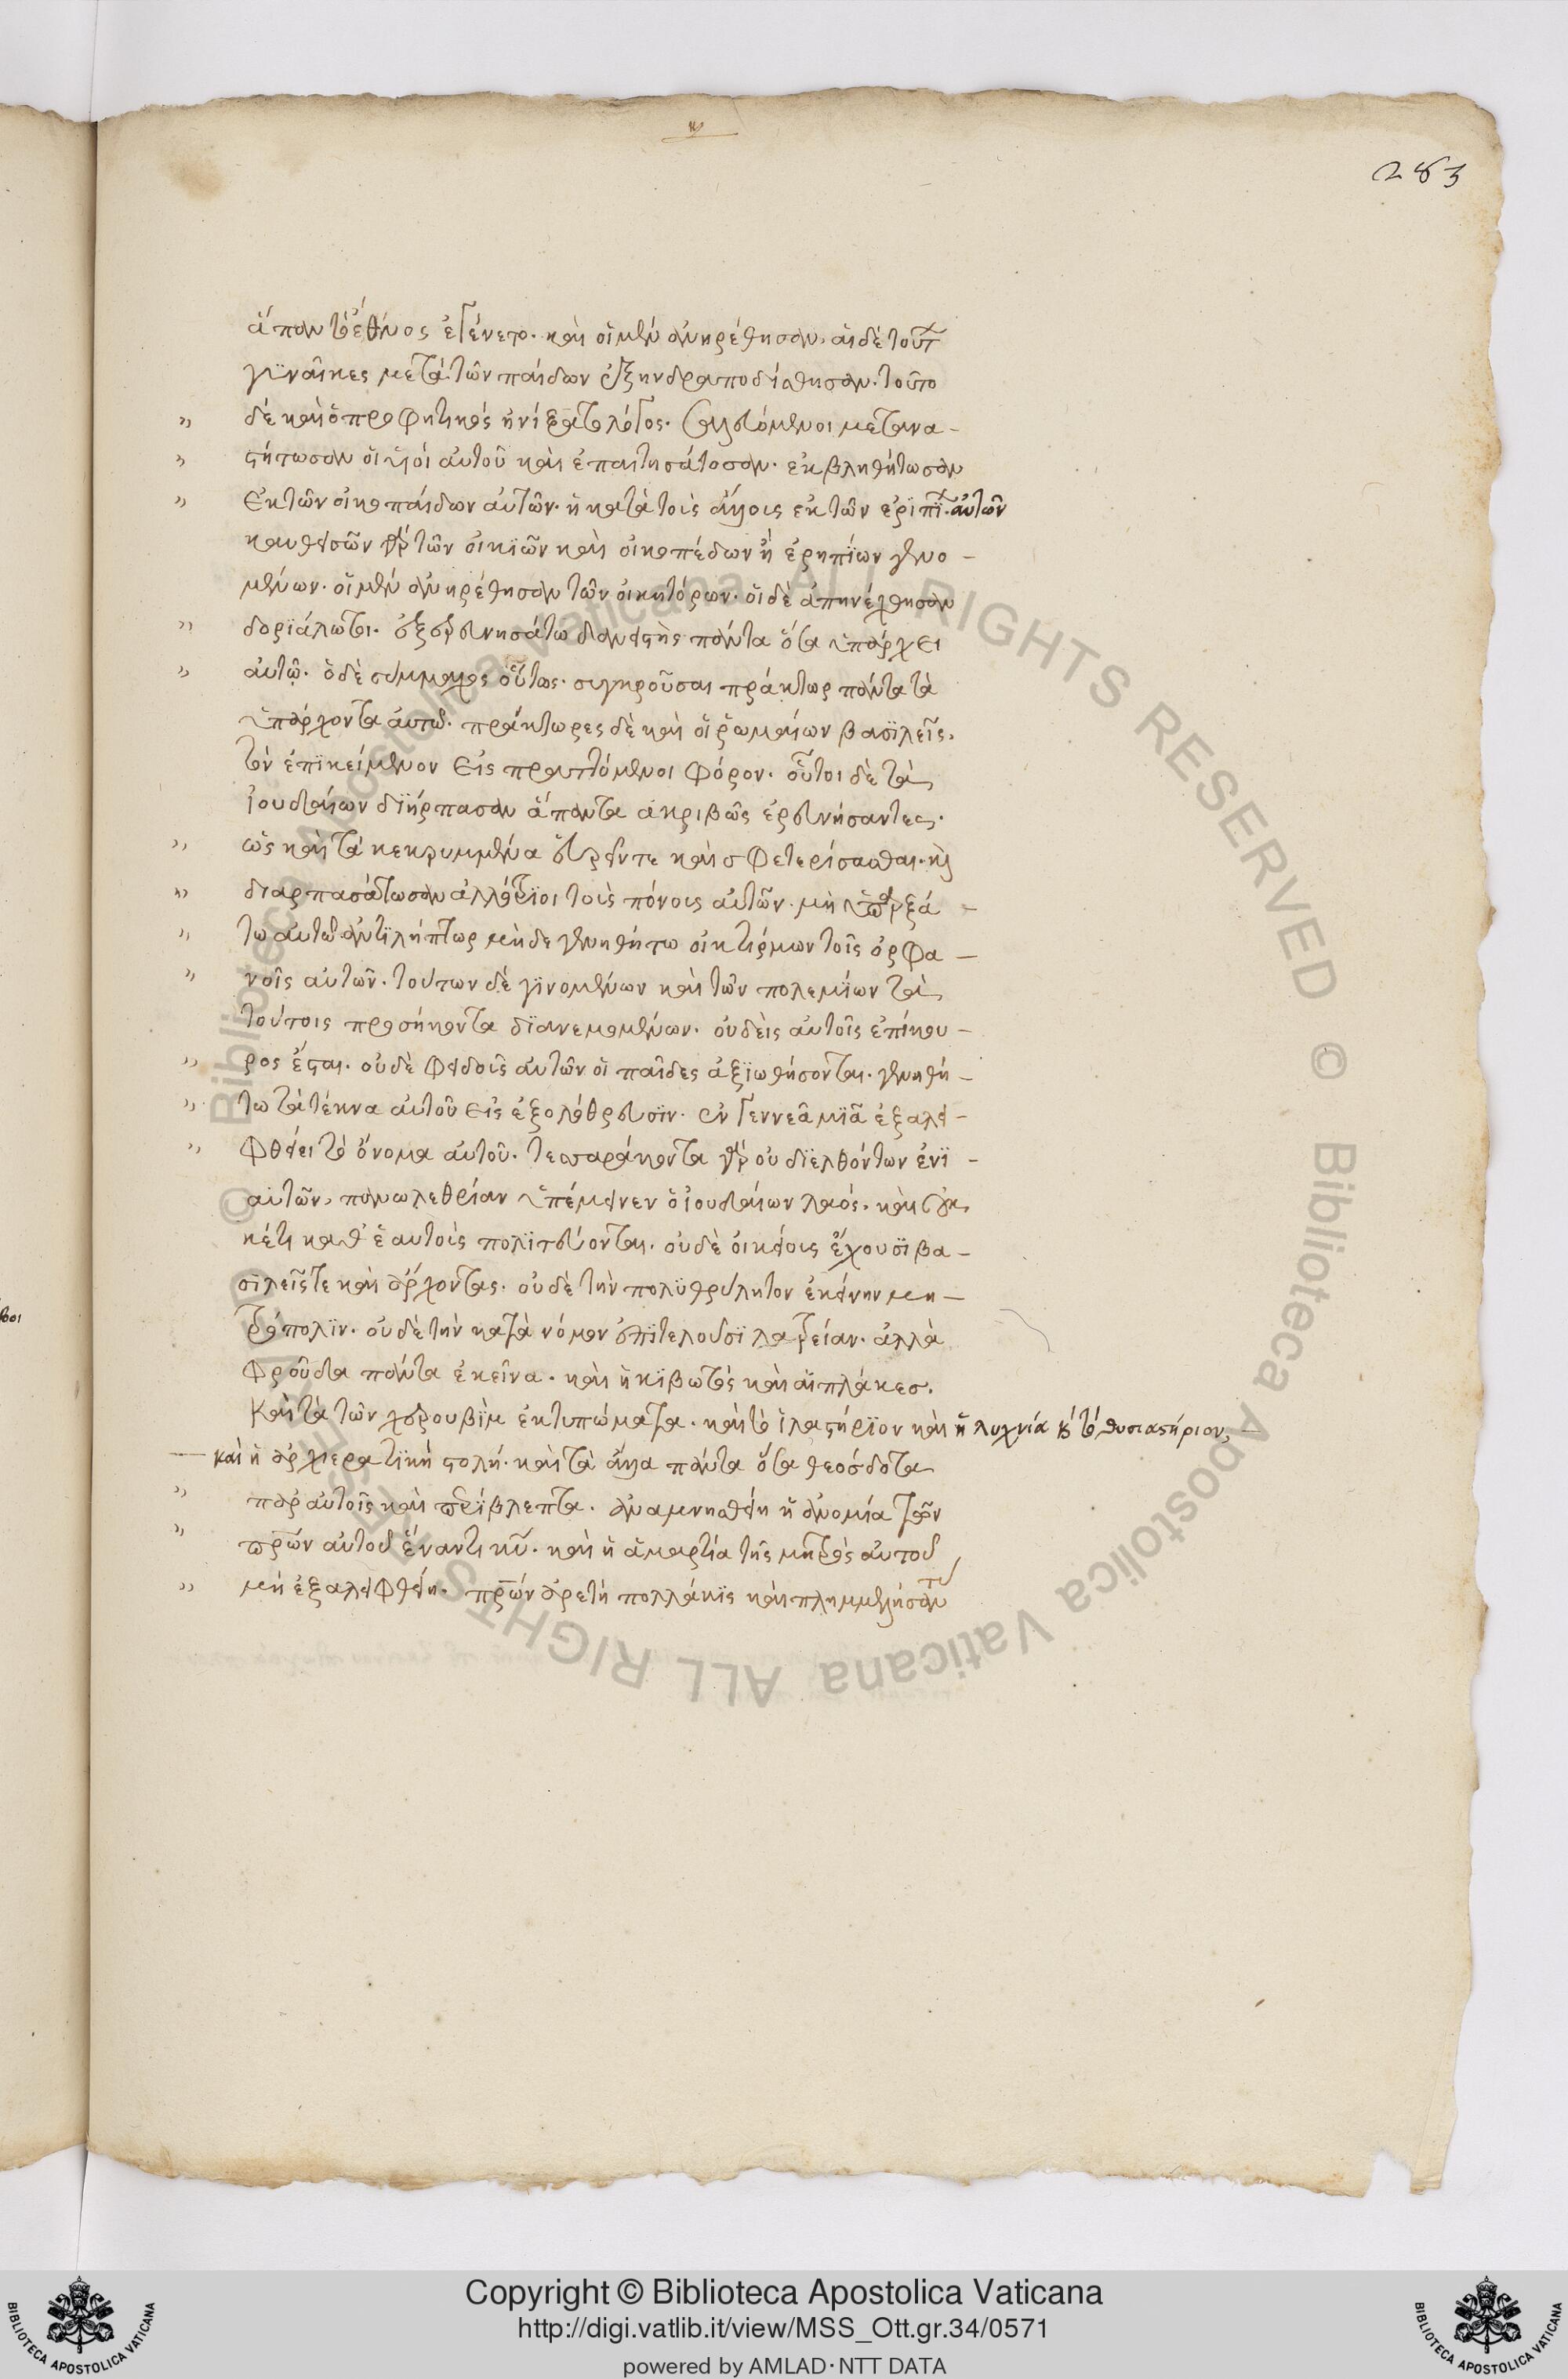 283
ἅπαν τὸ ἔθνος ἐγένετο. καὶ οἱ μὲν ἀνῃρέθησαν. αἱ δὲ τούτ
γϋναῖκες μετὰ τῶν παίδων ἐξηνδραποδίσθησαν. τοῦτο
δὲ καὶ ὁ προφητικὸς ᾐνίξατο λόγος. σαλευόμενοι μετανα -
στήτωσαν οἱ υἱοὶ αὐτοῦ καὶ ἐπαιτησάτοσαν. ἐκβληθήτωσαν
ἐκ τῶν οἰκοπαίδων αὐτῶν. ἢ κατὰ τοὺς ἄλλους ἐκ τῶν ἐριπΐ. αὐτῶν
καυθεισῶν γὰρ τῶν οἰκϊῶν καὶ οἰκοπέδων ἢ ἐρηπΐων γενο -
μένων. οἱ μὲν ἀνῃρέθησαν τῶν οἰκητόρων. οἱ δὲ ἀπηνέχθησαν
δορϊάλωτοι. ἐξερευνησάτω δανειστὴς πάντα ὅσα ὑπάρχει
αὐτῷ. ὁ δὲ σύμμαχος οὕτως. συγκροῦσαι πράκτωρ πάντα τὰ
ὑπάρχοντα αὐτῷ. πράκτωρες δὲ καὶ οἱ ῥωμαίων βασϊλεῖς.
τὸν ἐπϊκείμενον εἰς πραττόμενοι φόρον. οὗτοι δὲ τὰ
ἰουδαίων δϊήρπασαν ἅπαντα ἀκριβῶς ἐρευνήσαντες.
ὡς καὶ τὰ κεκρυμμένα εὑρεῖν τε καὶ σφετερίσασθαι. καὶ
διαρπασάτωσαν ἀλλότρϊοι τοὺς πόνους αὐτῶν. μὴ ὑπαρξά -
τω αὐτῷ ἀντϊλήπτωρ μὴ δὲ γενηθήτω οἰκτίρμων τοῖς ὀρφα -
νοῖς αὐτῶν. τούτων δὲ γϊνομένων καὶ τῶν πολεμΐων τὰ
τούτοις προσήκοντα δϊανεμομένων. οὐδεὶς αὐτοῖς ἐπίκου -
ρος ἔσται. οὐδὲ φειδοῦς αὐτῶν οἱ παῖδες ἀξϊωθήσονται. γενηθή -
τω τὰ τέκνα αὐτοῦ εἰς ἐξολόθρευσϊν. ἐν γεννεᾷ μϊᾷ ἐξαλει -
φθείει τὸ ὄνομα αὐτοῦ. τεσσαράκοντα γὰρ οὐ δϊελθόντων ἐνϊ -
αυτῶν. πανωλεθρίαν ὑπέμεινεν ὁ ἰουδαίων λαός. καὶ οὐ
κέτι καθ' ἑαυτοὺς πολϊτεύονται. οὐδὲ οἰκείους ἔχουσϊ βα -
σϊλεῖς τε καὶ ἄρχοντας. οὐδὲ τὴν πολϋθρύλητον ἐκείνην μη -
τρόπολϊν. οὐδὲ τὴν κατὰ νόμον ἐπϊτελοῦσϊ λατρείαν. ἀλλὰ
φροῦδα πάντα ἐκεῖνα. καὶ ἡ κϊβωτὸς καὶ αἱ πλάκεσ.
καὶ τὰ τῶν χερουβϊμ ἐκτυπώματα. καὶ τὸ ἱλαστήρϊον καὶ ἡ λυχνία καὶ τὸ θυσιαστήριον,
καὶ ἡ ἀρχιερατϊκὴ στολή. καὶ τὰ ἄλλα πάντα ὅσα θεόσδοτα
παρ αὐτοῖς καὶ περίβλεπτα. ἀναμνησθείη ἡ ἀνομία τῶν
πρων αὐτοῦ ἔναντι κυ. καὶ ἡ ἁμαρτία τῆς μητρὸς αὐτοῦ
μὴ ἐξαλειφθείη. πρων ἀρετὴ πολλάκϊς καὶ πλημμελήσασϊν
Copyright © Biblioteca Apostolica Vaticana
http://digi.vatlib.it/view/MSS_Ott.gr.34/0571
powered by AMLAD·NTT DATA
BIBLIOTECA APOSTOLICA VATICANA
BIBLIOTECA APOSTOLICA VATICANA
© Biblioteca Apostolica Vaticana ALL RIGHTS RESERVED
© Biblioteca Apostolica Vaticana ALL RIGHTS RESERVED